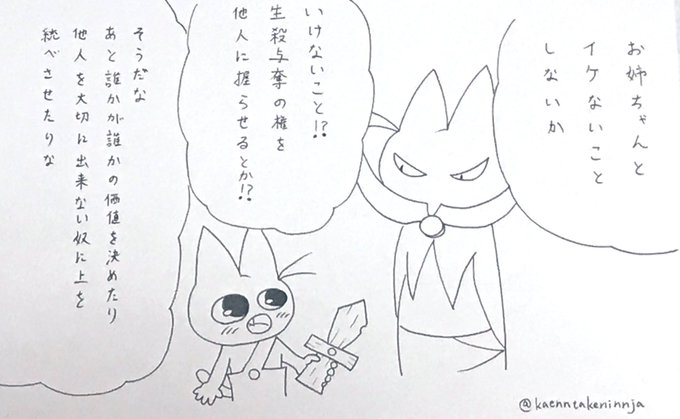 お姉ちゃんと
イケないこと
しないか
いけないこと!?
生殺与奪の権を
他人に握らせるとか!?
そうだな
あと誰かが誰かの価値を決めたり
他人を大切に出来ない奴に上を
統べさせたりな
@kaenntakeninnja